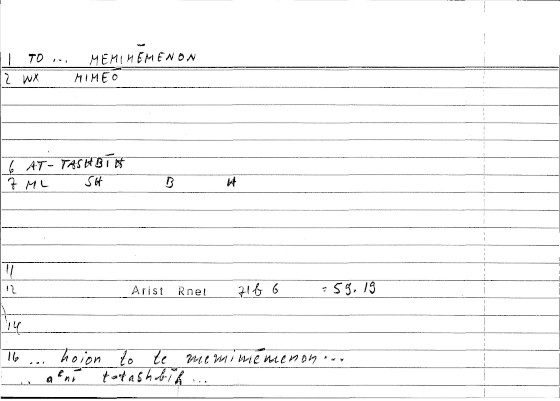 1 TO ... MEMIMĒMENON
2 WX MIMEO
6 AT-TASHBĪH
7 ML SH B H
11
12 Arist Rhet 71b 6 = 59.19
14
16 ... hoion to te memimēmenon ...
.. aʿnī t-tashbīh ...